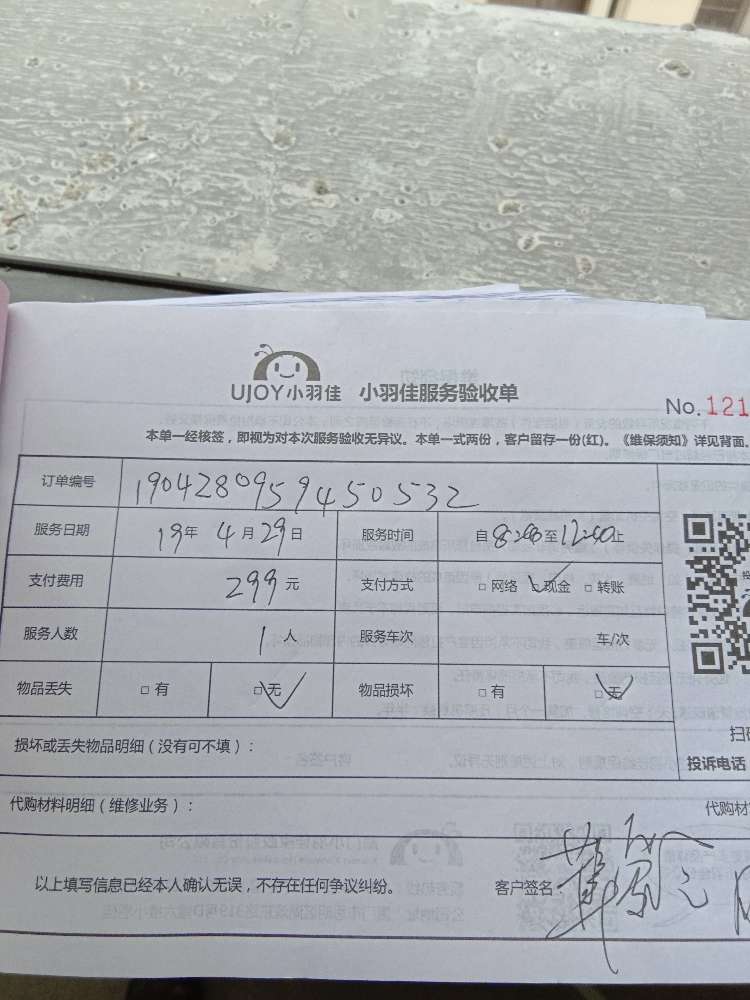 UJOY小羽佳 小羽佳服务验收单
No.121
本单一经核签，即视为对本次服务验收无异议。本单一式两份，客户留存一份(红)。《维保须知》详见背面。
订单编号 19042809594450532
服务日期 19年 4月29日 服务时间 自 至 止
支付费用 299元 支付方式 □网络 □现金 □转账
服务人数 1人 服务车次 车/次
物品丢失 □有 □无 物品损坏 □有 □无
损坏或丢失物品明细（没有可不填）：
投诉电话
代购材料明细（维修业务）：
代购材
以上填写信息已经本人确认无误，不存在任何争议纠纷。 客户签名